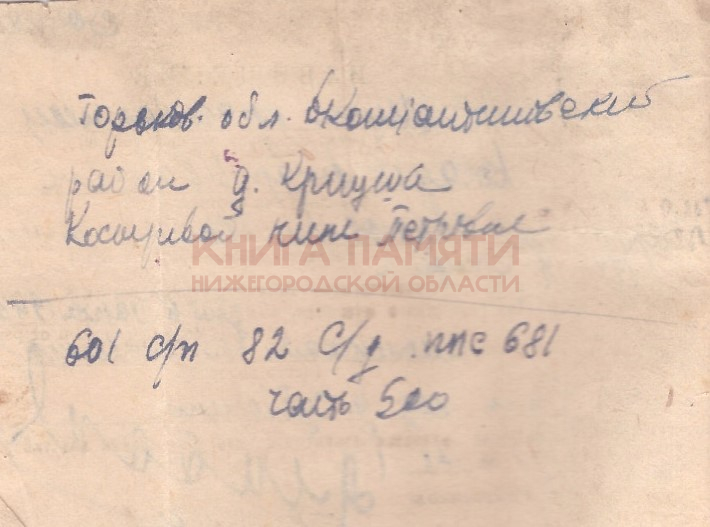 Горьков. обл. Б Константиновский
район д. Крицма
Косыревой Нине Петровне
КНИГА ПАМЯТИ
НИЖЕГОРОДСКОЙ ОБЛАСТИ
601 с/п 82 С/д ппс 681
часть 500